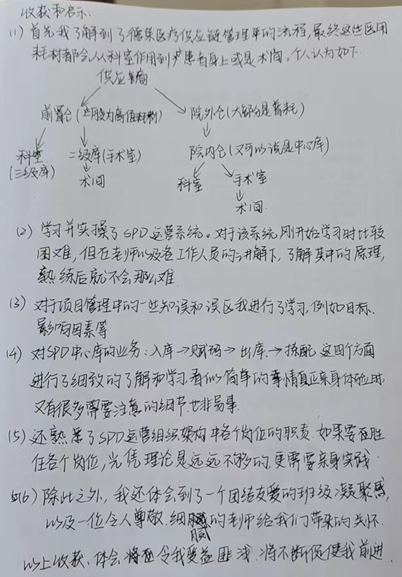 收获和启示:
(1) 首先我了解到了德荣医疗供应链管理的流程,最终这些医用
耗材都会从科室作用到患者身上或是术间,个人认为如下:
供应商
前置仓(一般为高值耗材) 院外仓(大部分是普耗)
科室 二级库(手术室) 院内仓(又可以说是中心库)
(三级库) 术间 科室 手术室
术间
(2) 学习并实操了SPD运营系统。对于该系统刚开始学习时比较
困难,但在老师以及各工作人员的讲解下,了解其中的原理,
熟练后就不会那么难.
(3) 对于项目管理中的一些知识和误区我进行了学习,例如目标、
影响因素等
(4) 对SPD中心库的业务:入库→赋码→出库→拣配 这四个方面
进行了细致的了解和学习 看似简单的事情真正亲身体验时
又有很多需要注意的细节,也非易事.
(5) 还熟悉了SPD运营组织架构中各个岗位的职责 如果要在胜
任各个岗位,光凭理论是远远不够的 更需要亲身实践.
(6) 除此之外,我还体会到了一个团结友爱的班级凝聚感,
以及一位令人尊敬.细腻的老师给我们带来的关怀.
以上收获、体会 将令我受益匪浅.将不断促使我前进.